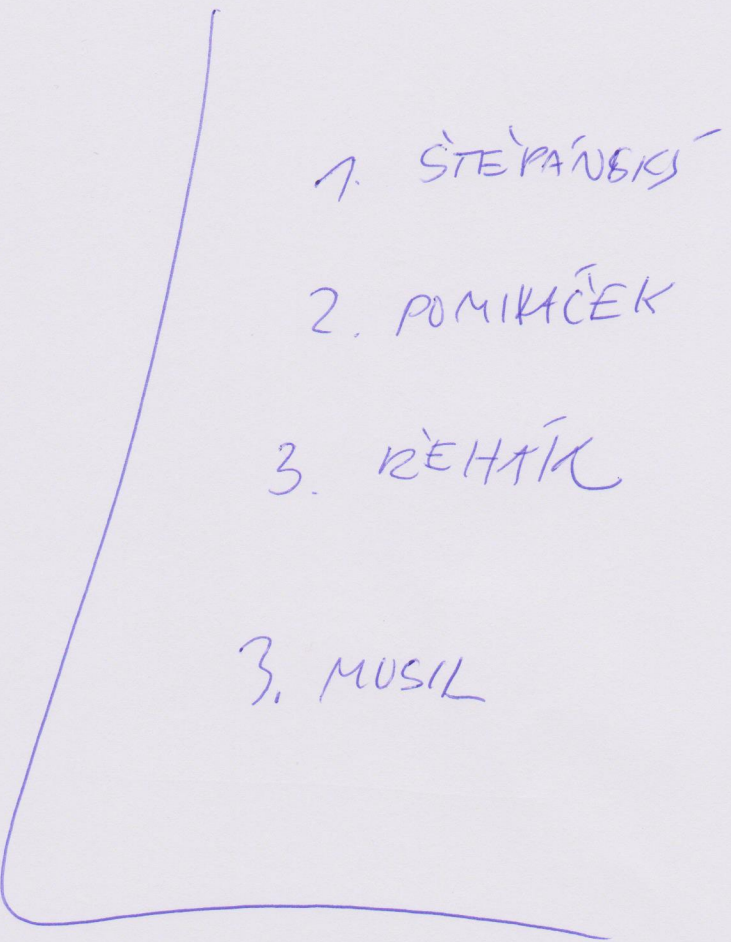 1. ŠTĚPÁNSKÝ
2. POMIKÁČEK
3. ŘEHÁK
3. MUSIL